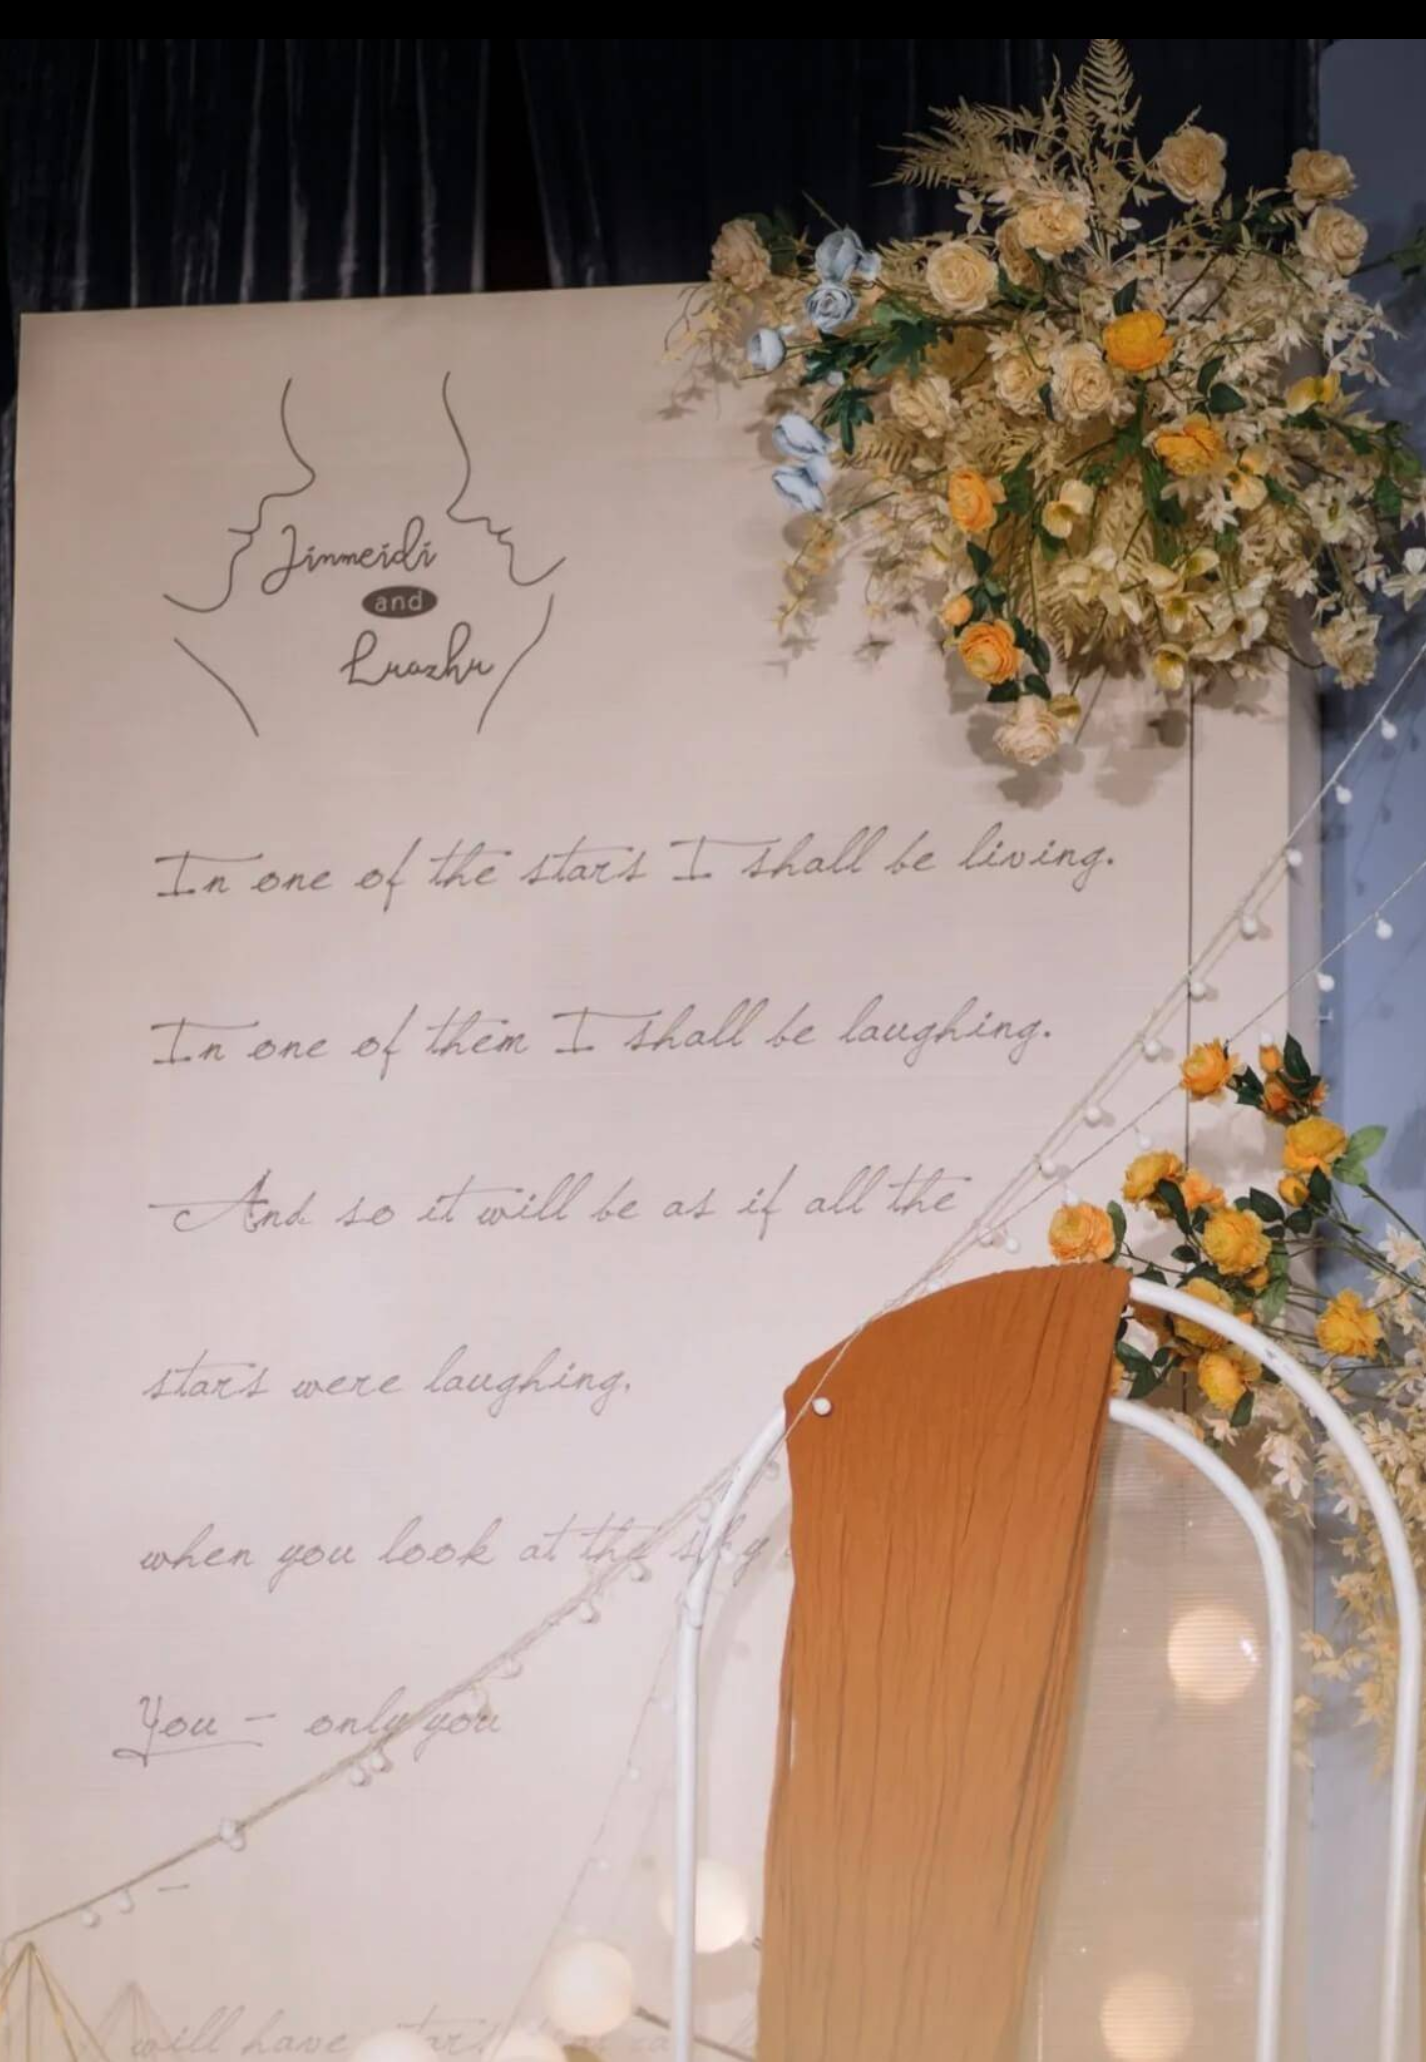 Jinmeidi
and
Luozhu
In one of the stars I shall be living.
In one of them I shall be laughing.
And so it will be as if all the
stars were laughing.
when you look at the sky
You - only you
will have stars